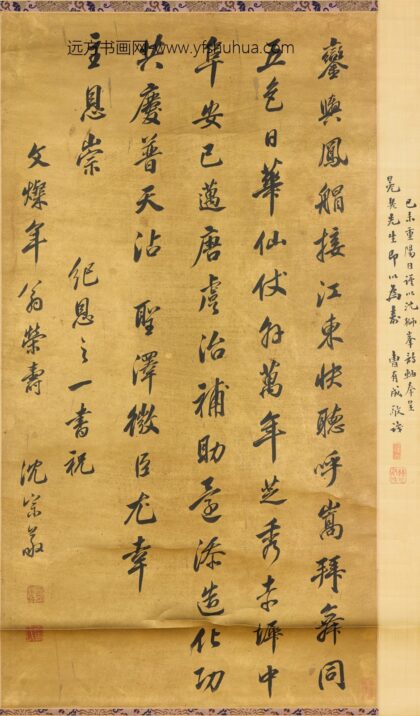 远方书画网-www.yfshuhua.com
鸞輿鳳艒接江東快聽呼嵩拜舞同
五色日華仙仗外萬年芝秀赤墀中
阜安已邁唐虞治補助還添造化功
共慶普天沾聖澤微臣尤幸
主恩崇
紀恩之一書祝
文燦年翁榮壽
沈宗敬
己未重陽日謹以沈獅峯詩軸奉呈
先生即以為壽
曹有成敬識